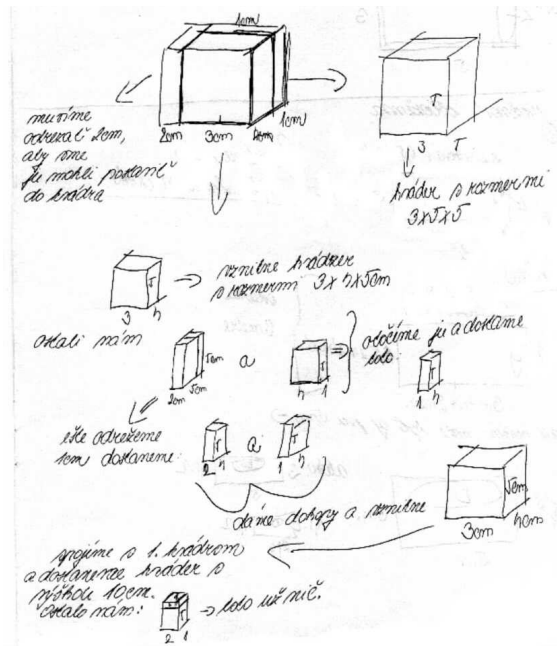 1cm
musíme
odrezať 2cm,
aby sme
ju mohli postaviť
do kvádra
2cm 3cm 4cm 1cm
5
3 5
kváder s rozmermi
3x5x5
5
3 4
vznikne kváder
s rozmermi 3x4x5cm
ostali nám
5cm
2cm 5cm
a
5
4 1
otočíme ju a dostaneme
toto:
5
1 4
ešte odrežeme
1cm dostaneme:
5
2 4
a
5
1 4
dáme dokopy a vznikne
5cm
3cm 4cm
spojíme s 1. kvádrom
a dostaneme kváder s
výškou 10cm.
Ostalo nám:
5
2 1
toto už nič.